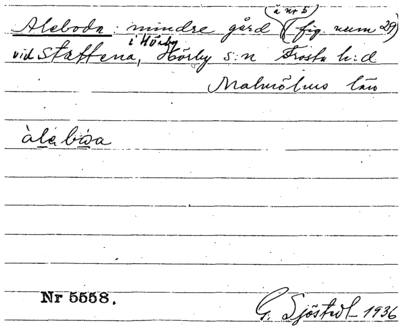 (å nr 5)
Aleboda: mindre gård (fig. num 29)
i Hörby
vid Stattena, Hörby s:n Frosta h:d
Malmöhus län
àlebòsa
Nr 5558.
G. Sjöstedt 1936